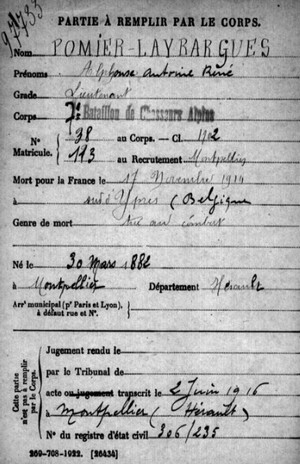 PARTIE À REMPLIR PAR LE CORPS.
Nom POMIER-LAYRARGUES
Prénoms Alphonse Antoine René
Grade Lieutenant
Corps 7e Bataillon de Chasseurs Alpins
N° Matricule. 38 au Corps. — Cl. 1902
113 au Recrutement Montpellier
Mort pour la France le 17 Novembre 1914
à sud d'Ypres (Belgique
Genre de mort tué au combat
Né le 30 Mars 1882
à Montpellier Département Hérault
Arrt municipal (pr Paris et Lyon),
à défaut rue et N°.
Cette partie n'est pas à remplir par le Corps.
Jugement rendu le
par le Tribunal de
acte ou jugement transcrit le 2 Juin 1916
à Montpellier (Hérault)
N° du registre d'état civil 306/235
269-708-1922. [26434]